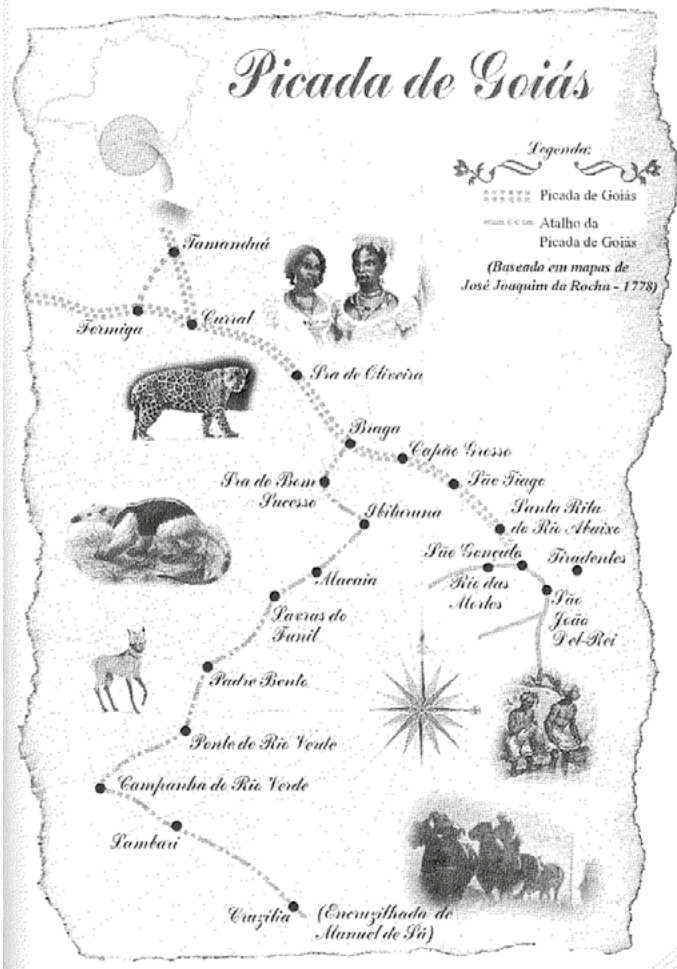 Picada de Goiás
Legenda:
Picada de Goiás
Atalho da
Picada de Goiás
(Baseada em mapas de
José Joaquim da Rocha - 1778)
Tamanduá
Formiga
Curral
Sra de Oliveira
Braga
Capão Grosso
São Tiago
Sra do Bom
Sucesso
Ibituruna
Santa Rita
do Rio Abaixo
São Gonçalo
Tiradentes
Rio das
Mortes
São
João
Del-Rei
Macaia
Lavras do
Funil
Padre Bento
Ponte do Rio Verde
Campanha do Rio Verde
Lambari
Cruzília
(Encruzilhada de
Manuel de Sá)